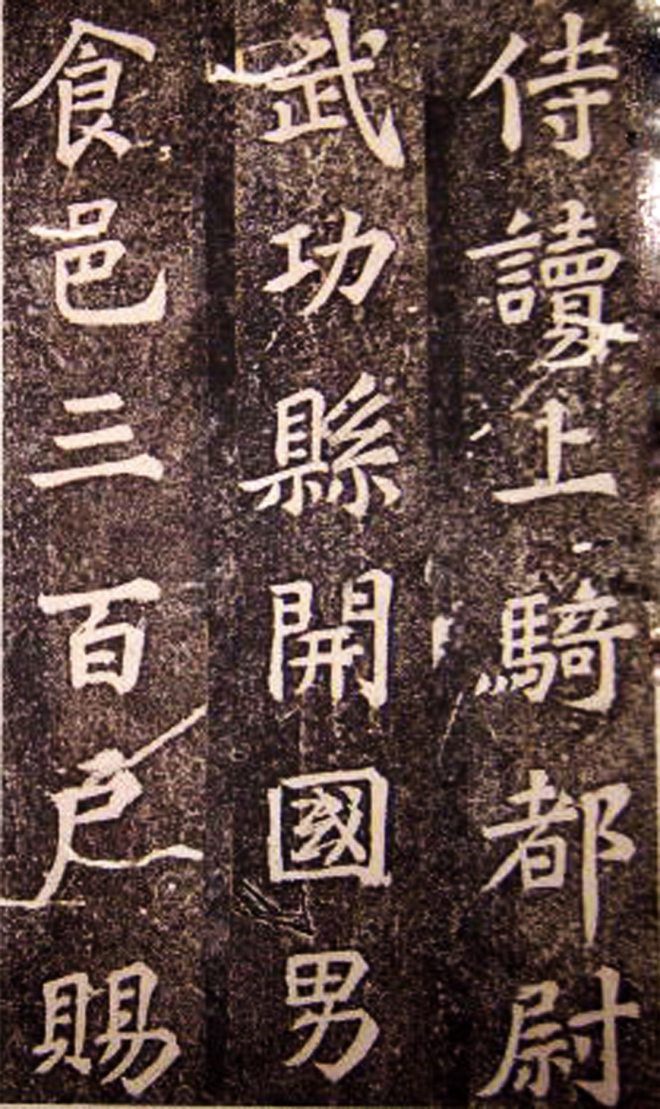 侍讀上騎都尉
武功縣開國男
食邑三百户賜